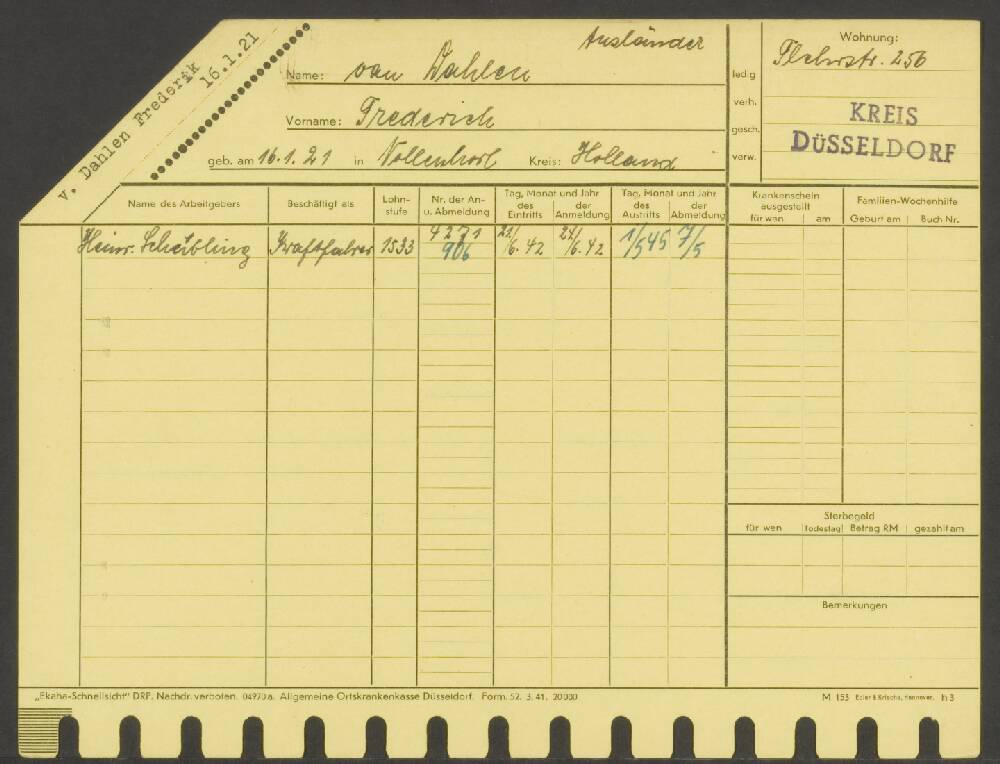 v. Dahlen Frederik
16.1.21
Ausländer
Name: van Dahlen
Vorname: Frederich
geb. am 16.1.21 in Vollenhorl Kreis: Holland
ledig
verh.
gesch.
verw.
Wohnung:
256
KREIS
DÜSSELDORF
Name des Arbeitgebers
Beschäftigt als
Lohn-
stufe
Nr. der An-
u. Abmeldung
Tag, Monat und Jahr
des der
Eintritts Anmeldung
Tag, Monat und Jahr
des der
Austritts Abmeldung
Krankenschein
ausgestellt
für wen am
Familien-Wochenhilfe
Geburt am Buch Nr.
Heinr. Scheibling Kraftfahrer 1533 4271 21/6.42 24/6.42 1/5 45 7/5
906
Sterbegeld
für wen Todestag Betrag RM gezahlt am
Bemerkungen
„Ekaha-Schnellsicht" DRP. Nachdr. verboten. 04970a. Allgemeine Ortskrankenkasse Düsseldorf. Form. 52. 3.41. 20000
M 153 Ezler & Krische, Hannover. h3